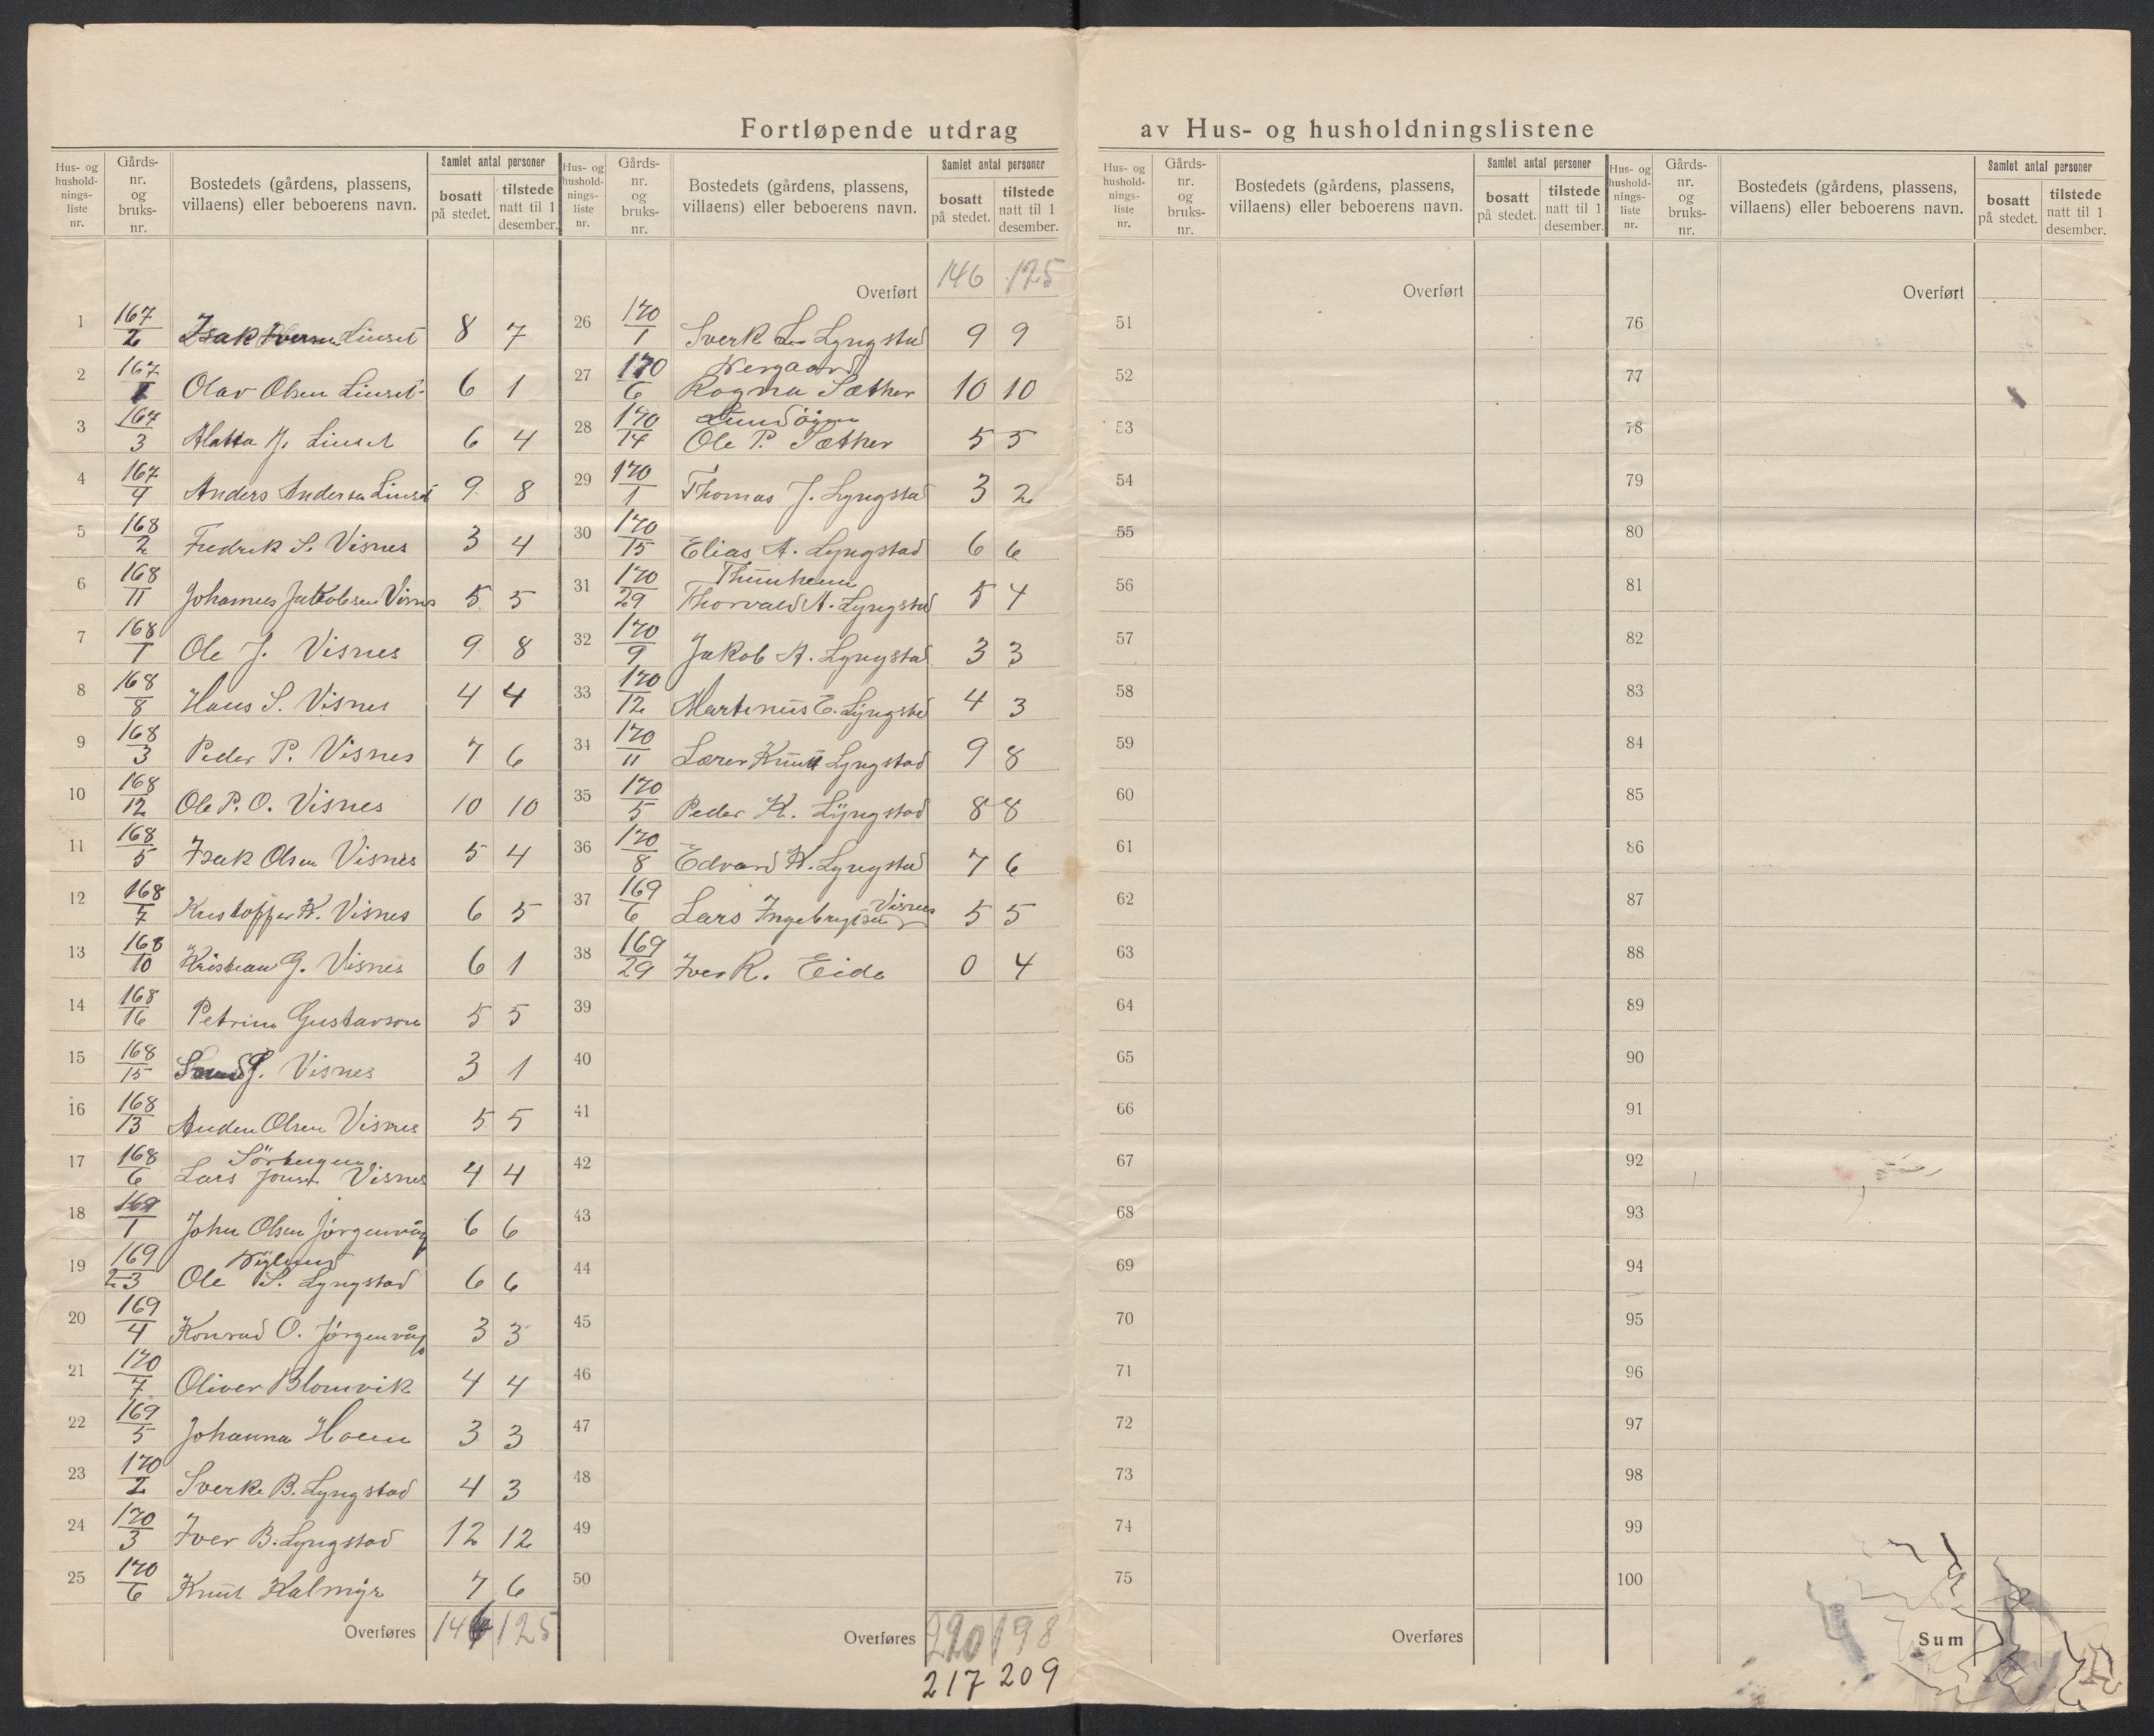 Fortløpende utdrag av Hus- og husholdningslistene
Hus- og hushold-nings-liste nr. Gårds-nr. og bruks-nr. Bostedets (gårdens, plassens, villaens) eller beboerens navn. Samlet antal personer bosatt på stedet. tilstede natt til 1 desember.
1 167/2 Isak Linset 8 7
2 167/1 Olav Olsen Linset 6 1
3 167/3 Linset 6 4
4 167/4 Anders Andersen Linset 9 8
5 168/2 Fredrik S. Visnes 3 4
6 168/11 Johannes Jakobsen Visnes 5 5
7 168/1 Ole J. Visnes 9 8
8 168/8 Hans S. Visnes 4 4
9 168/3 Peder P. Visnes 7 6
10 168/12 Ole P. O. Visnes 10 10
11 168/5 Isak Olsen Visnes 5 4
12 168/7 Kristoffer K. Visnes 6 5
13 168/10 Kristian G. Visnes 6 1
14 168/16 Petrine Gustavson 5 5
15 168/15 Visnes 3 1
16 168/13 Olsen Visnes 5 5
17 168/6 Lars Visnes 4 4
18 169/1 John Olsen Jørgenvåg 6 6
19 169/2-3 Nylund
Ole S. Lyngstad 6 6
20 169/4 Konrad O. Jørgenvåg 3 3
21 170/7 Oliver Blomvik 4 4
22 169/5 Johanna Hoem 3 3
23 170/2 Sverke B. Lyngstad 4 3
24 170/3 Iver B. Lyngstad 12 12
25 170/6 Knut Kalmyr 7 6
Overføres 146 125
Hus- og hushold-nings-liste nr. Gårds-nr. og bruks-nr. Bostedets (gårdens, plassens, villaens) eller beboerens navn. Samlet antal personer bosatt på stedet. tilstede natt til 1 desember.
Overført 146 125
26 170/1 Sverk L. Lyngstad 9 9
27 170/6 Nergaard
Ragna Sæther 10 10
28 170/14
Ole P. Sæther 5 5
29 170/1 Thomas J. Lyngstad 3 2
30 170/15 Elias A. Lyngstad 6 6
31 170/29
Thorvald A. Lyngstad 5 4
32 170/9 Jakob A. Lyngstad 3 3
33 170/12 Martinus E. Lyngstad 4 3
34 170/11 Lærer Knut Lyngstad 9 8
35 170/5 Peder K. Lyngstad 8 8
36 170/8 Edvard K. Lyngstad 7 6
37 169/6 Lars Ingebrigtsen Visnes 5 5
38 169/29 Iver K. Eide 0 4
39
40
41
42
43
44
45
46
47
48
49
50
Overføres 220 198
217 209
Hus- og hushold-nings-liste nr. Gårds-nr. og bruks-nr. Bostedets (gårdens, plassens, villaens) eller beboerens navn. Samlet antal personer bosatt på stedet. tilstede natt til 1 desember.
Overført
51
52
53
54
55
56
57
58
59
60
61
62
63
64
65
66
67
68
69
70
71
72
73
74
75
Overføres
Hus- og hushold-nings-liste nr. Gårds-nr. og bruks-nr. Bostedets (gårdens, plassens, villaens) eller beboerens navn. Samlet antal personer bosatt på stedet. tilstede natt til 1 desember.
Overført
76
77
78
79
80
81
82
83
84
85
86
87
88
89
90
91
92
93
94
95
96
97
98
99
100
Sum